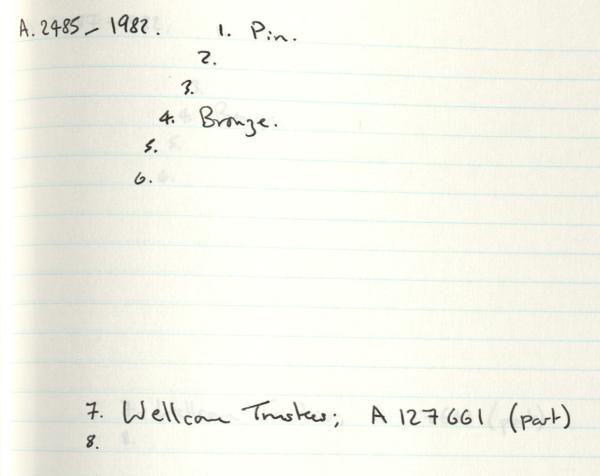 A.2485-1982. 1. Pin.
2.
3.
4. Bronze.
5.
6.
7. Wellcome Trustees; A 127661 (part)
8.